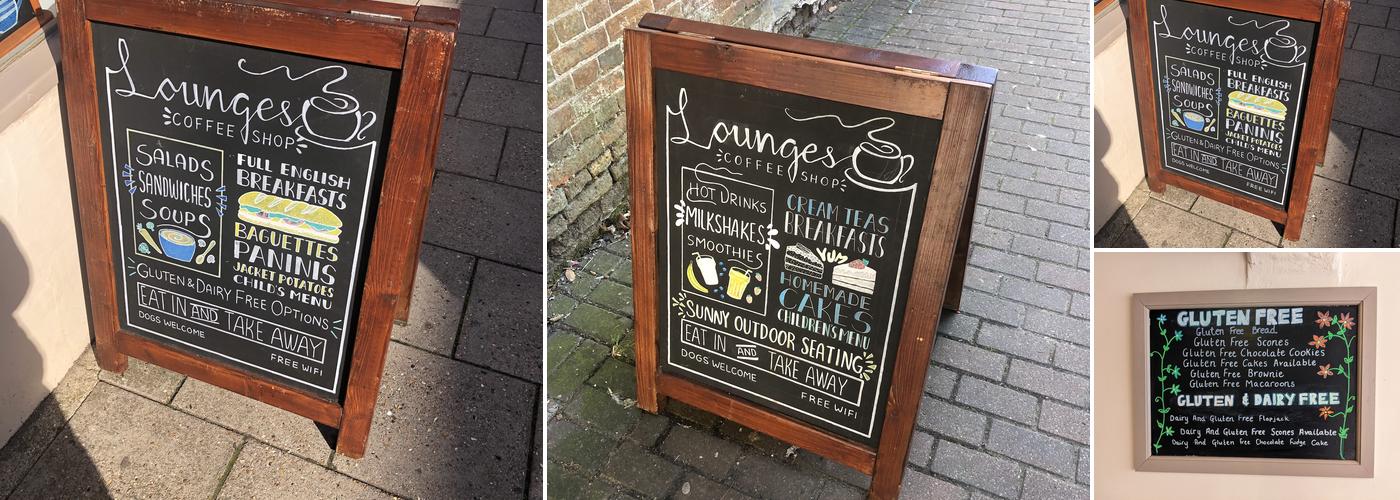 Lounges
COFFEE SHOP
SALADS
SANDWICHES
SOUPS
FULL ENGLISH
BREAKFASTS
BAGUETTES
PANINIS
JACKET POTATOES
CHILD'S MENU
GLUTEN & DAIRY FREE OPTIONS
EAT IN AND TAKE AWAY
DOGS WELCOME
FREE WIFI
Lounges
COFFEE SHOP
HOT DRINKS
MILKSHAKES
SMOOTHIES
CREAM TEAS
BREAKFASTS
HOMEMADE
CAKES
CHILDRENS MENU
SUNNY OUTDOOR SEATING
EAT IN AND TAKE AWAY
DOGS WELCOME
FREE WIFI
Lounges
COFFEE SHOP
SALADS
SANDWICHES
SOUPS
FULL ENGLISH
BREAKFASTS
BAGUETTES
PANINIS
JACKET POTATOES
CHILD'S MENU
GLUTEN & DAIRY FREE OPTIONS
EAT IN AND TAKE AWAY
DOGS WELCOME
FREE WIFI
GLUTEN FREE
Gluten Free Bread
Gluten Free Scones
Gluten Free Chocolate Cookies
Gluten Free Cakes Available
Gluten Free Brownie
Gluten Free Macaroons
GLUTEN & DAIRY FREE
Dairy And Gluten Free Flapjack
Dairy And Gluten Free Scones Available
Dairy And Gluten Free Chocolate Fudge Cake